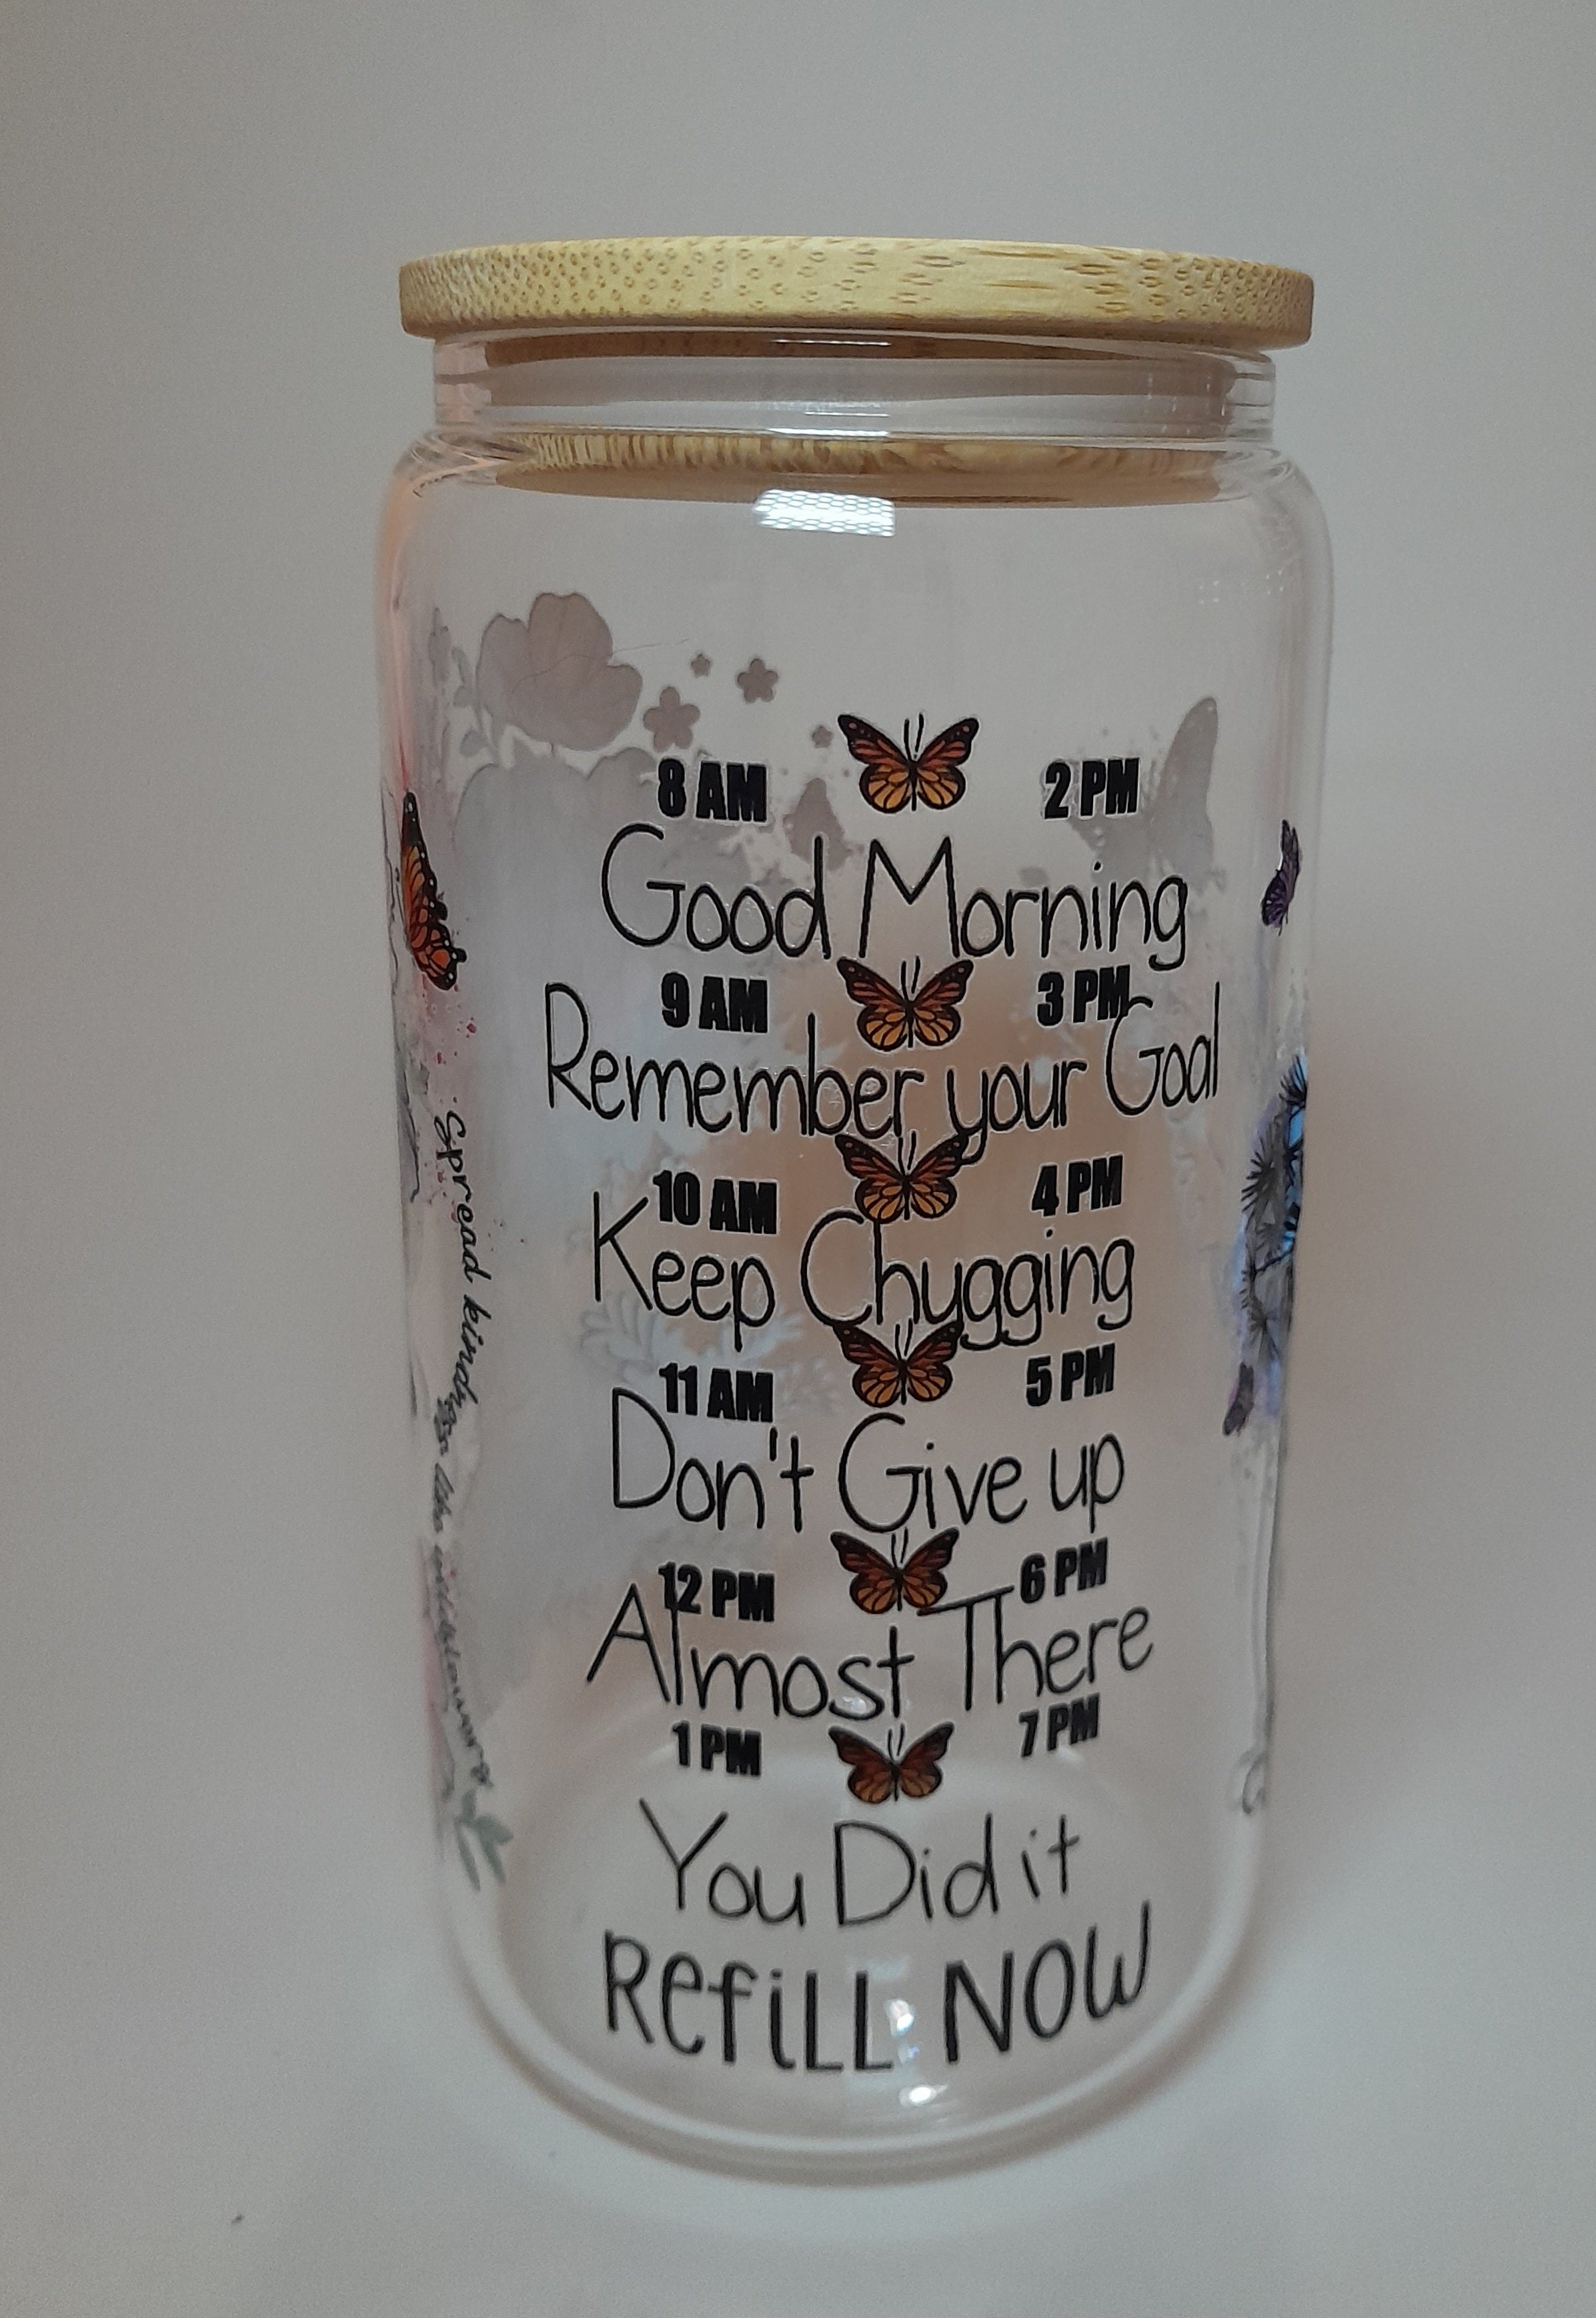 8 AM 2 PM
Good Morning
9 AM 3 PM
Remember your Goal
10 AM 4 PM
Keep Chugging
11 AM 5 PM
Don't Give up
12 PM 6 PM
Almost There
1 PM 7 PM
You Did it
Refill NOW
Spread kindness like wildflowers